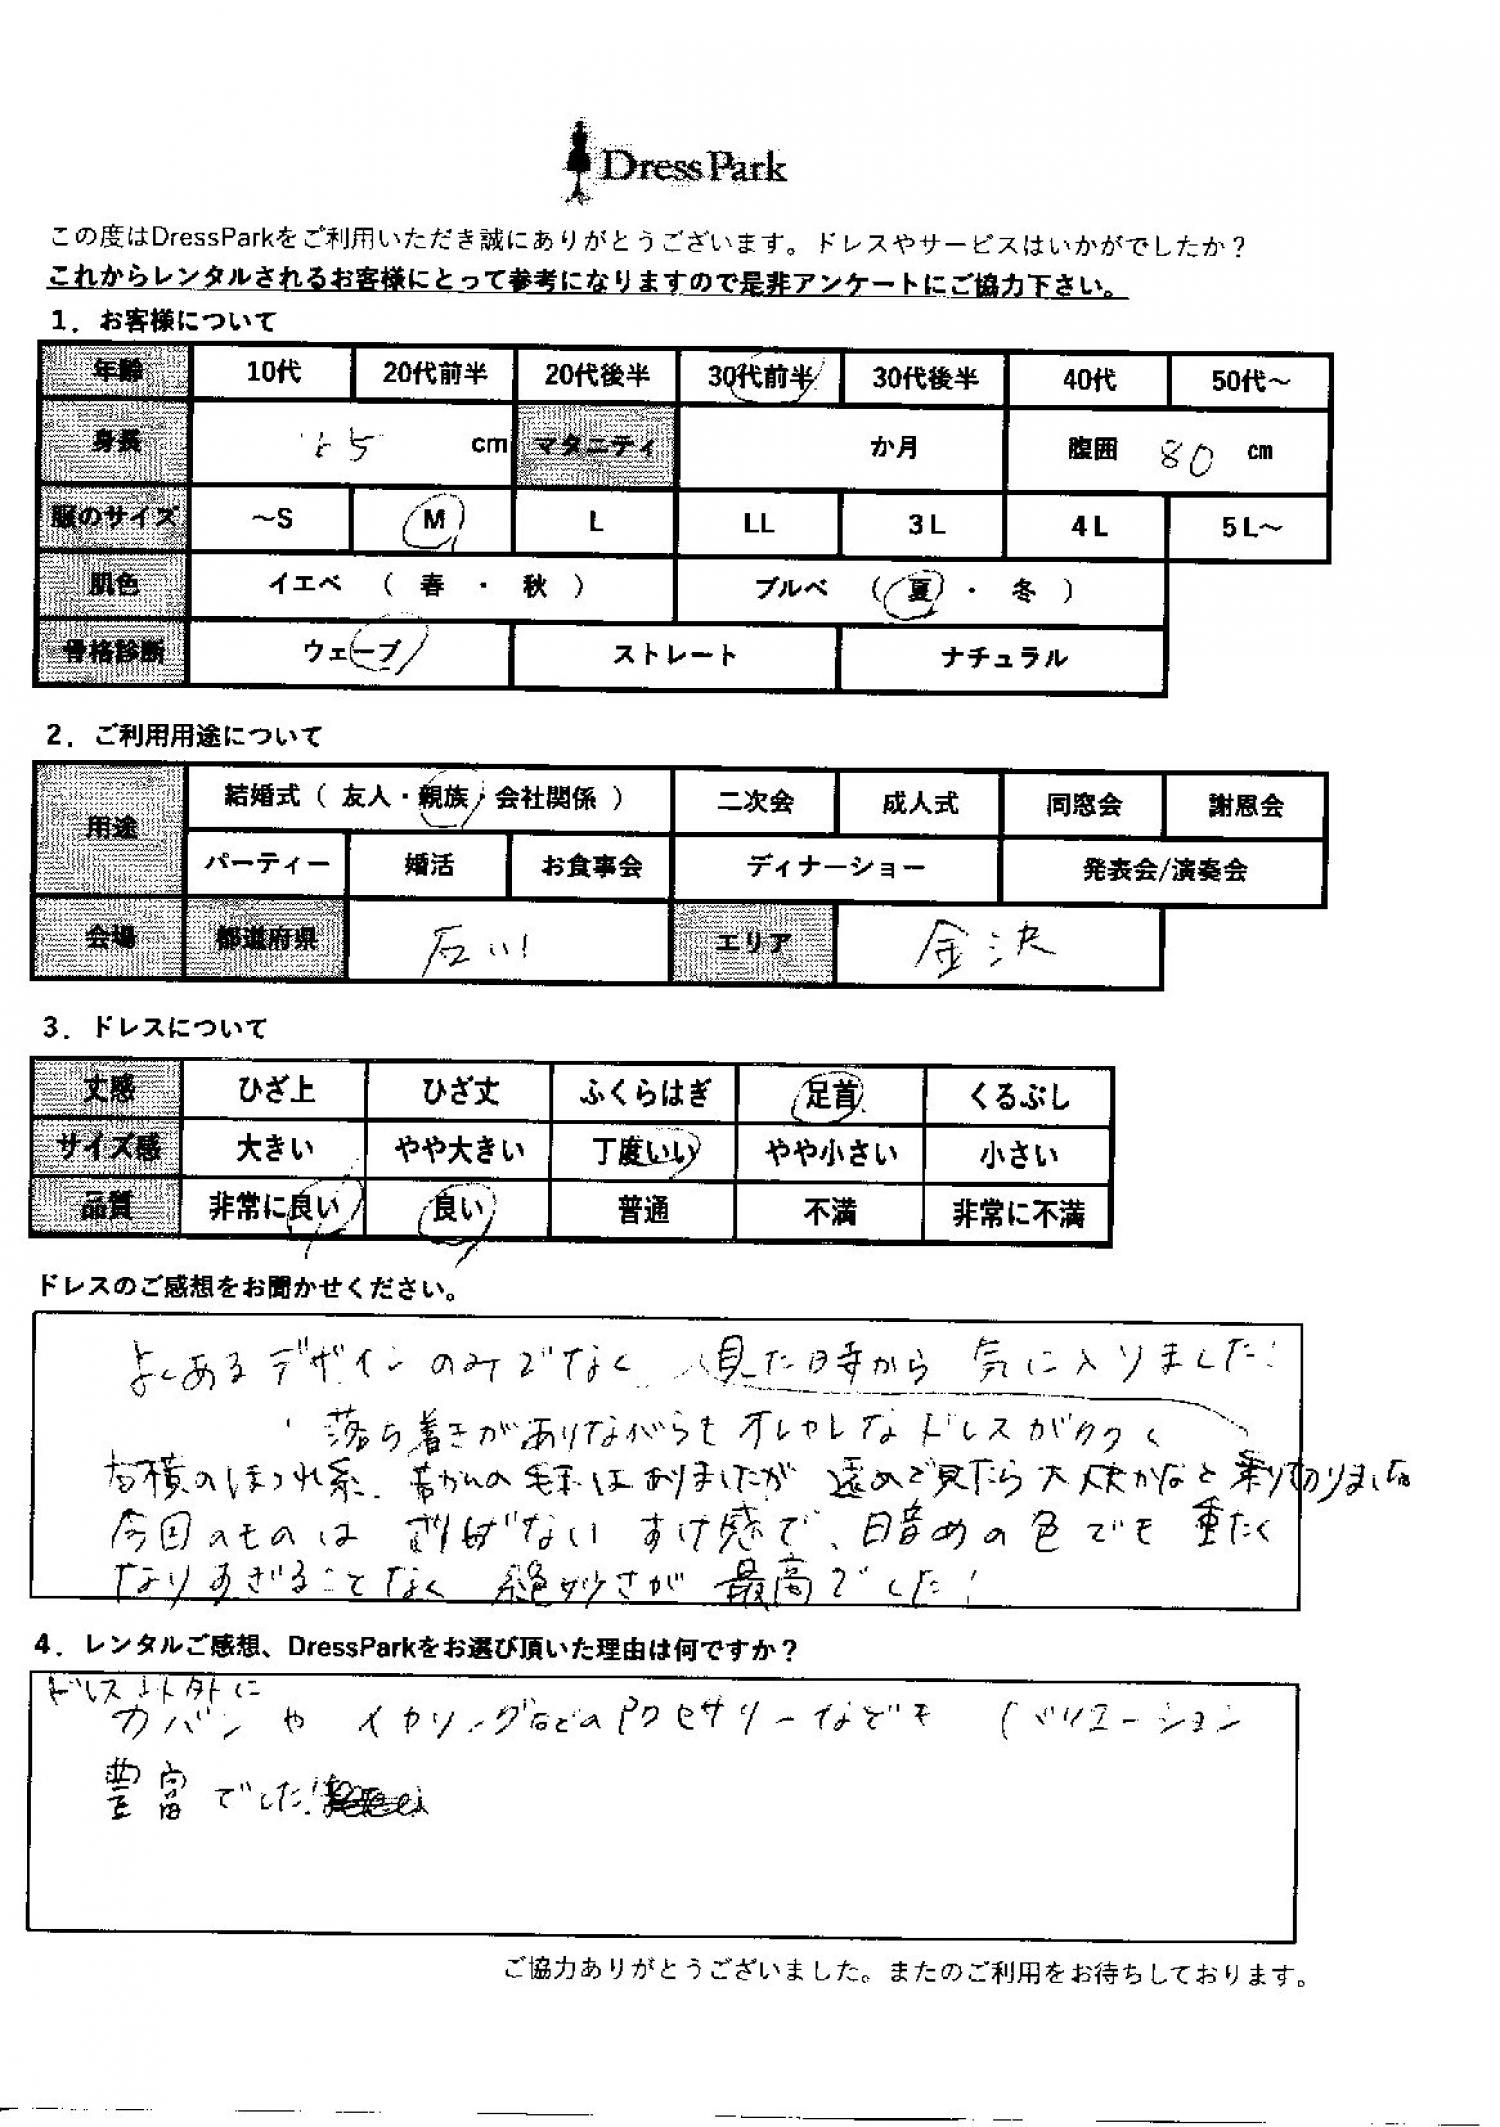 Dress Park
この度はDressParkをご利用いただき誠にありがとうございます。ドレスやサービスはいかがでしたか？
これからレンタルされるお客様にとって参考になりますので是非アンケートにご協力下さい。
1．お客様について
年齢 10代 20代前半 20代後半 30代前半 30代後半 40代 50代～
身長 cm マタニティ か月 腹囲 80 cm
服のサイズ ～S M L LL 3L 4L 5L～
肌色 イエベ （ 春 ・ 秋 ） ブルベ （ 夏 ・ 冬 ）
骨格診断 ウェーブ ストレート ナチュラル
2．ご利用用途について
用途 結婚式（ 友人・親族・会社関係 ） 二次会 成人式 同窓会 謝恩会
パーティー 婚活 お食事会 ディナーショー 発表会/演奏会
会場 都道府県 石川 エリア 金沢
3．ドレスについて
丈感 ひざ上 ひざ丈 ふくらはぎ 足首 くるぶし
サイズ感 大きい やや大きい 丁度いい やや小さい 小さい
品質 非常に良い 良い 普通 不満 非常に不満
ドレスのご感想をお聞かせください。
よくあるデザインのみでなく、見た時から 気に入りました！
落ち着きがありながらもオシャレなドレスが多く
のほつれ糸、 はありましたが 遠めで見たら大丈夫かなと乗り切りました
今回のものは すけ感で、暗めの色でも重たく
なりすぎることなく 絶妙さが 最高でした！
4．レンタルご感想、DressParkをお選び頂いた理由は何ですか？
ドレス以外に
カバンや イヤリングなどのアクセサリーなども バリエーション
豊富でした！
ご協力ありがとうございました。またのご利用をお待ちしております。